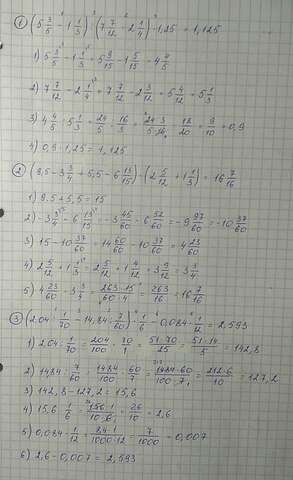 ① (5 3/5 - 1 1/3) : (7 7/12 - 2 1/4) · 1,25 = 1,125
1) 5 3/5 - 1 1/3 = 5 9/15 - 1 5/15 = 4 4/5
2) 7 7/12 - 2 1/4 = 7 7/12 - 2 3/12 = 5 4/12 = 5 1/3
3) 4 4/5 : 5 1/3 = 24/5 : 16/3 = 24·3/5·16 = 18/20 = 9/10 = 0,9
4) 0,9 · 1,25 = 1,125
② (9,5 - 3 3/4 + 5,5 - 6 13/15) : (2 5/12 + 1 1/3) = 16 7/16
1) 9.5 + 5,5 = 15
2) -3 3/4 - 6 13/15 = -3 45/60 - 6 52/60 = -9 97/60 = -10 37/60
3) 15 - 10 37/60 = 14 60/60 - 10 37/60 = 4 23/60
4) 2 5/12 + 1 1/3 = 2 5/12 + 1 4/12 = 3 9/12 = 3 3/4
5) 4 23/60 : 3 3/4 = 263·15/60·4 = 263/16 = 16 7/16
③ (2.04 : 1/70 - 14,84 : 7/60) · 1/6 - 0,084 · 1/12 = 2,593
1) 2.04 : 1/70 = 204/100 · 70/1 = 51·70/25 = 51·14/5 = 142,8
2) 1484 : 7/60 = 1484/100 · 60/7 = 1484·60/100·7 = 212·6/10 = 127,2
3) 142,8 - 127,2 = 15,6
4) 15,6 · 1/6 = 156·1/10·6 = 26/10 = 2,6
5) 0,084 · 1/12 = 84·1/1000·12 = 7/1000 = 0,007
6) 2,6 - 0,007 = 2,593